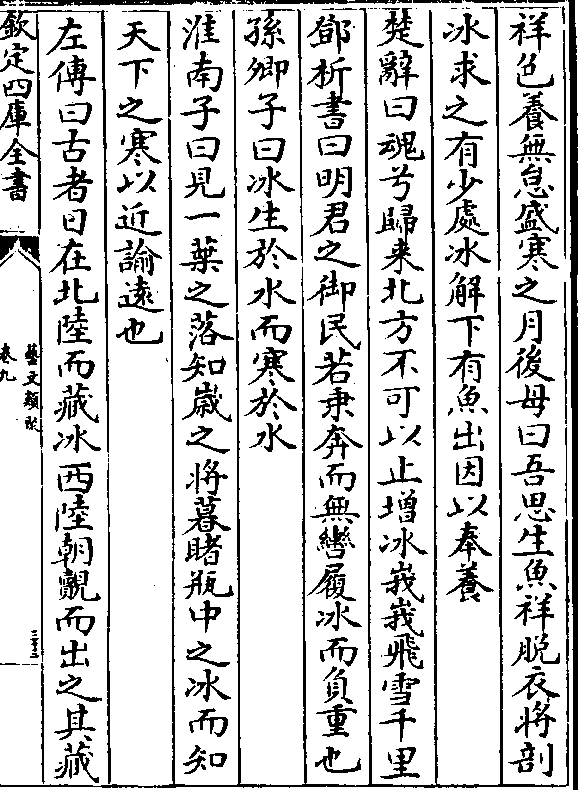 祥色養無怠盛寒之月後母曰吾思生魚祥脫衣將剖
冰求之有少處冰解下有魚出因以奉養
楚辭曰魂兮歸来北方不可以止増冰峩峩飛雪千里
鄧析書曰明君之御民若秉奔而無轡履冰而負重也
孫卿子曰冰生於水而寒於水
淮南子曰見一葉之落知嵗之將暮睹瓶中之冰而知
天下之寒以近諭遠也
左傳曰古者日在北陸而藏冰西陸朝覿而出之其藏
欽定四庫全書
藝文類聚
卷九
三十三